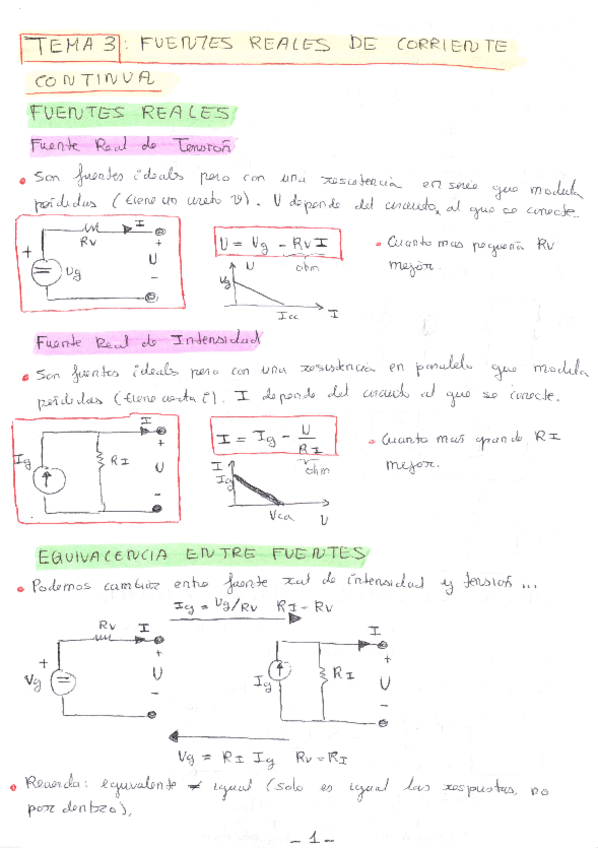 TEMA 3: FUENTES REALES DE CORRIENTE
CONTINUA
FUENTES REALES
Fuente Real de Tensión
• Son fuentes ideales pero con una resistencia en serie que modula
pérdidas (tiene un cierto v). U depende del circuito al que se conecte.
Rv I
+ Ug + U -
U = Vg - Rv I
ohm
• Cuanto mas pequeña Rv
mejor.
U
Vg
Icc I
Fuente Real de Intensidad
• Son fuentes ideales pero con una resistencia en paralelo que modula
pérdidas (tiene cierta i). I depende del circuito al que se conecte.
I
Ig RI + U -
I = Ig - U/RI
ohm
• Cuanto mas grande RI
mejor.
I
Ig
Vca U
EQUIVALENCIA ENTRE FUENTES
• Podemos cambiar entre fuente real de intensidad y tensión ...
Ig = Vg/Rv RI = Rv
Rv I
+ Vg + U -
I
Ig RI + U -
Vg = RI Ig Rv = RI
• Recuerda: equivalente ≠ igual (solo es igual las respuestas, no
por dentro),
- 1 -